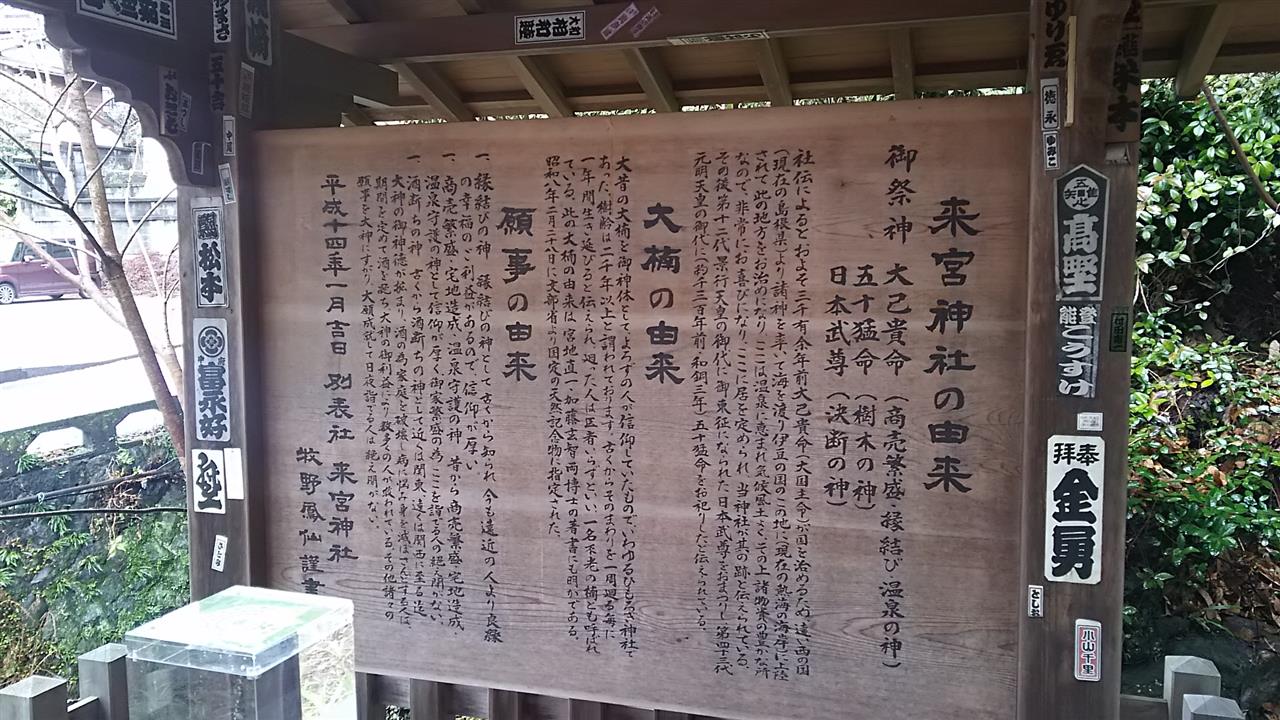 来宮神社の由来
御祭神 大己貴命(商売繁盛・縁結び 温泉の神)
五十猛命(樹木の神)
日本武尊(決断の神)
社伝によるとおよそ三千有余年前大己貴命(大国主命)が国を治めるため、遠い西の国
(現在の島根県)より諸神を率いて海を渡り伊豆の国のこの地に現在の熱海の海岸に上陸
されて、此の地方をお治めになり、ここは温泉に恵まれ気候風土よく、その上諸物産の豊かな所
なので、非常にお喜びになり、ここに居を定められ、当神社が其の跡と伝えられている。
その後第十二代景行天皇の御代に御東征になられた日本武尊をおまつりし第四十三代
元明天皇の御代に約千三百年前(和銅三年)五十猛命を和祀りしたと伝えられている。
大楠の由来
大昔の大楠を御神体として、よろずの人が信仰していたもので、いわゆるひもろぎ神社で
あった、樹齢は二千年以上と謂われております。古くからそのまわりを一周廻る毎に
一年間生き延びると伝えられ、廻った人は医者いらずといい、一名不老の楠とも呼ばれ
ている。此の大楠の由来は、宮地直一、加藤玄智両博士の著書にも明かである。
昭和八年二月二十八日に文部省より国定の天然記念物に指定された。
願事の由来
一、縁結びの神 縁結びの神として古くから知られ、今も遠近の人より良縁
の幸福のご利益があるので、信仰が厚い。
一、商売繁盛、宅地造成、温泉守護の神 昔から商売繁盛、宅地造成、
温泉守護の神として信仰が厚く、御家繁盛の為、ここを詣でる人の絶え間がない。
一、酒断ちの神 古くから酒断ちの神として近くは関東、遠くは関西に至る迄、
大神の御神徳が弘まり、酒の為、家庭を壊し、病に悩み身を滅ぼさんとする人は、
期間を定めて酒を断ち大神の御利益により、多くの人が救われている。その他諸々の
願事を大神にすがり、大願成就して日夜詣でる人は絶え間がない。
平成十四年一月吉日 別表社 来宮神社
牧野鳳仙謹書
柏和睦
松本
富永好
德永
ゆみこ
高野
能登こうすけ
奉拝
金勇
としお
小山千里